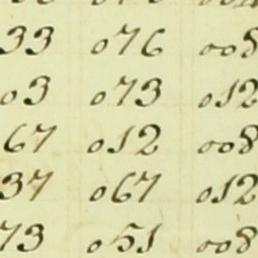 33 076 008
03 073 012
67 012 008
37 067 012
73 051 008